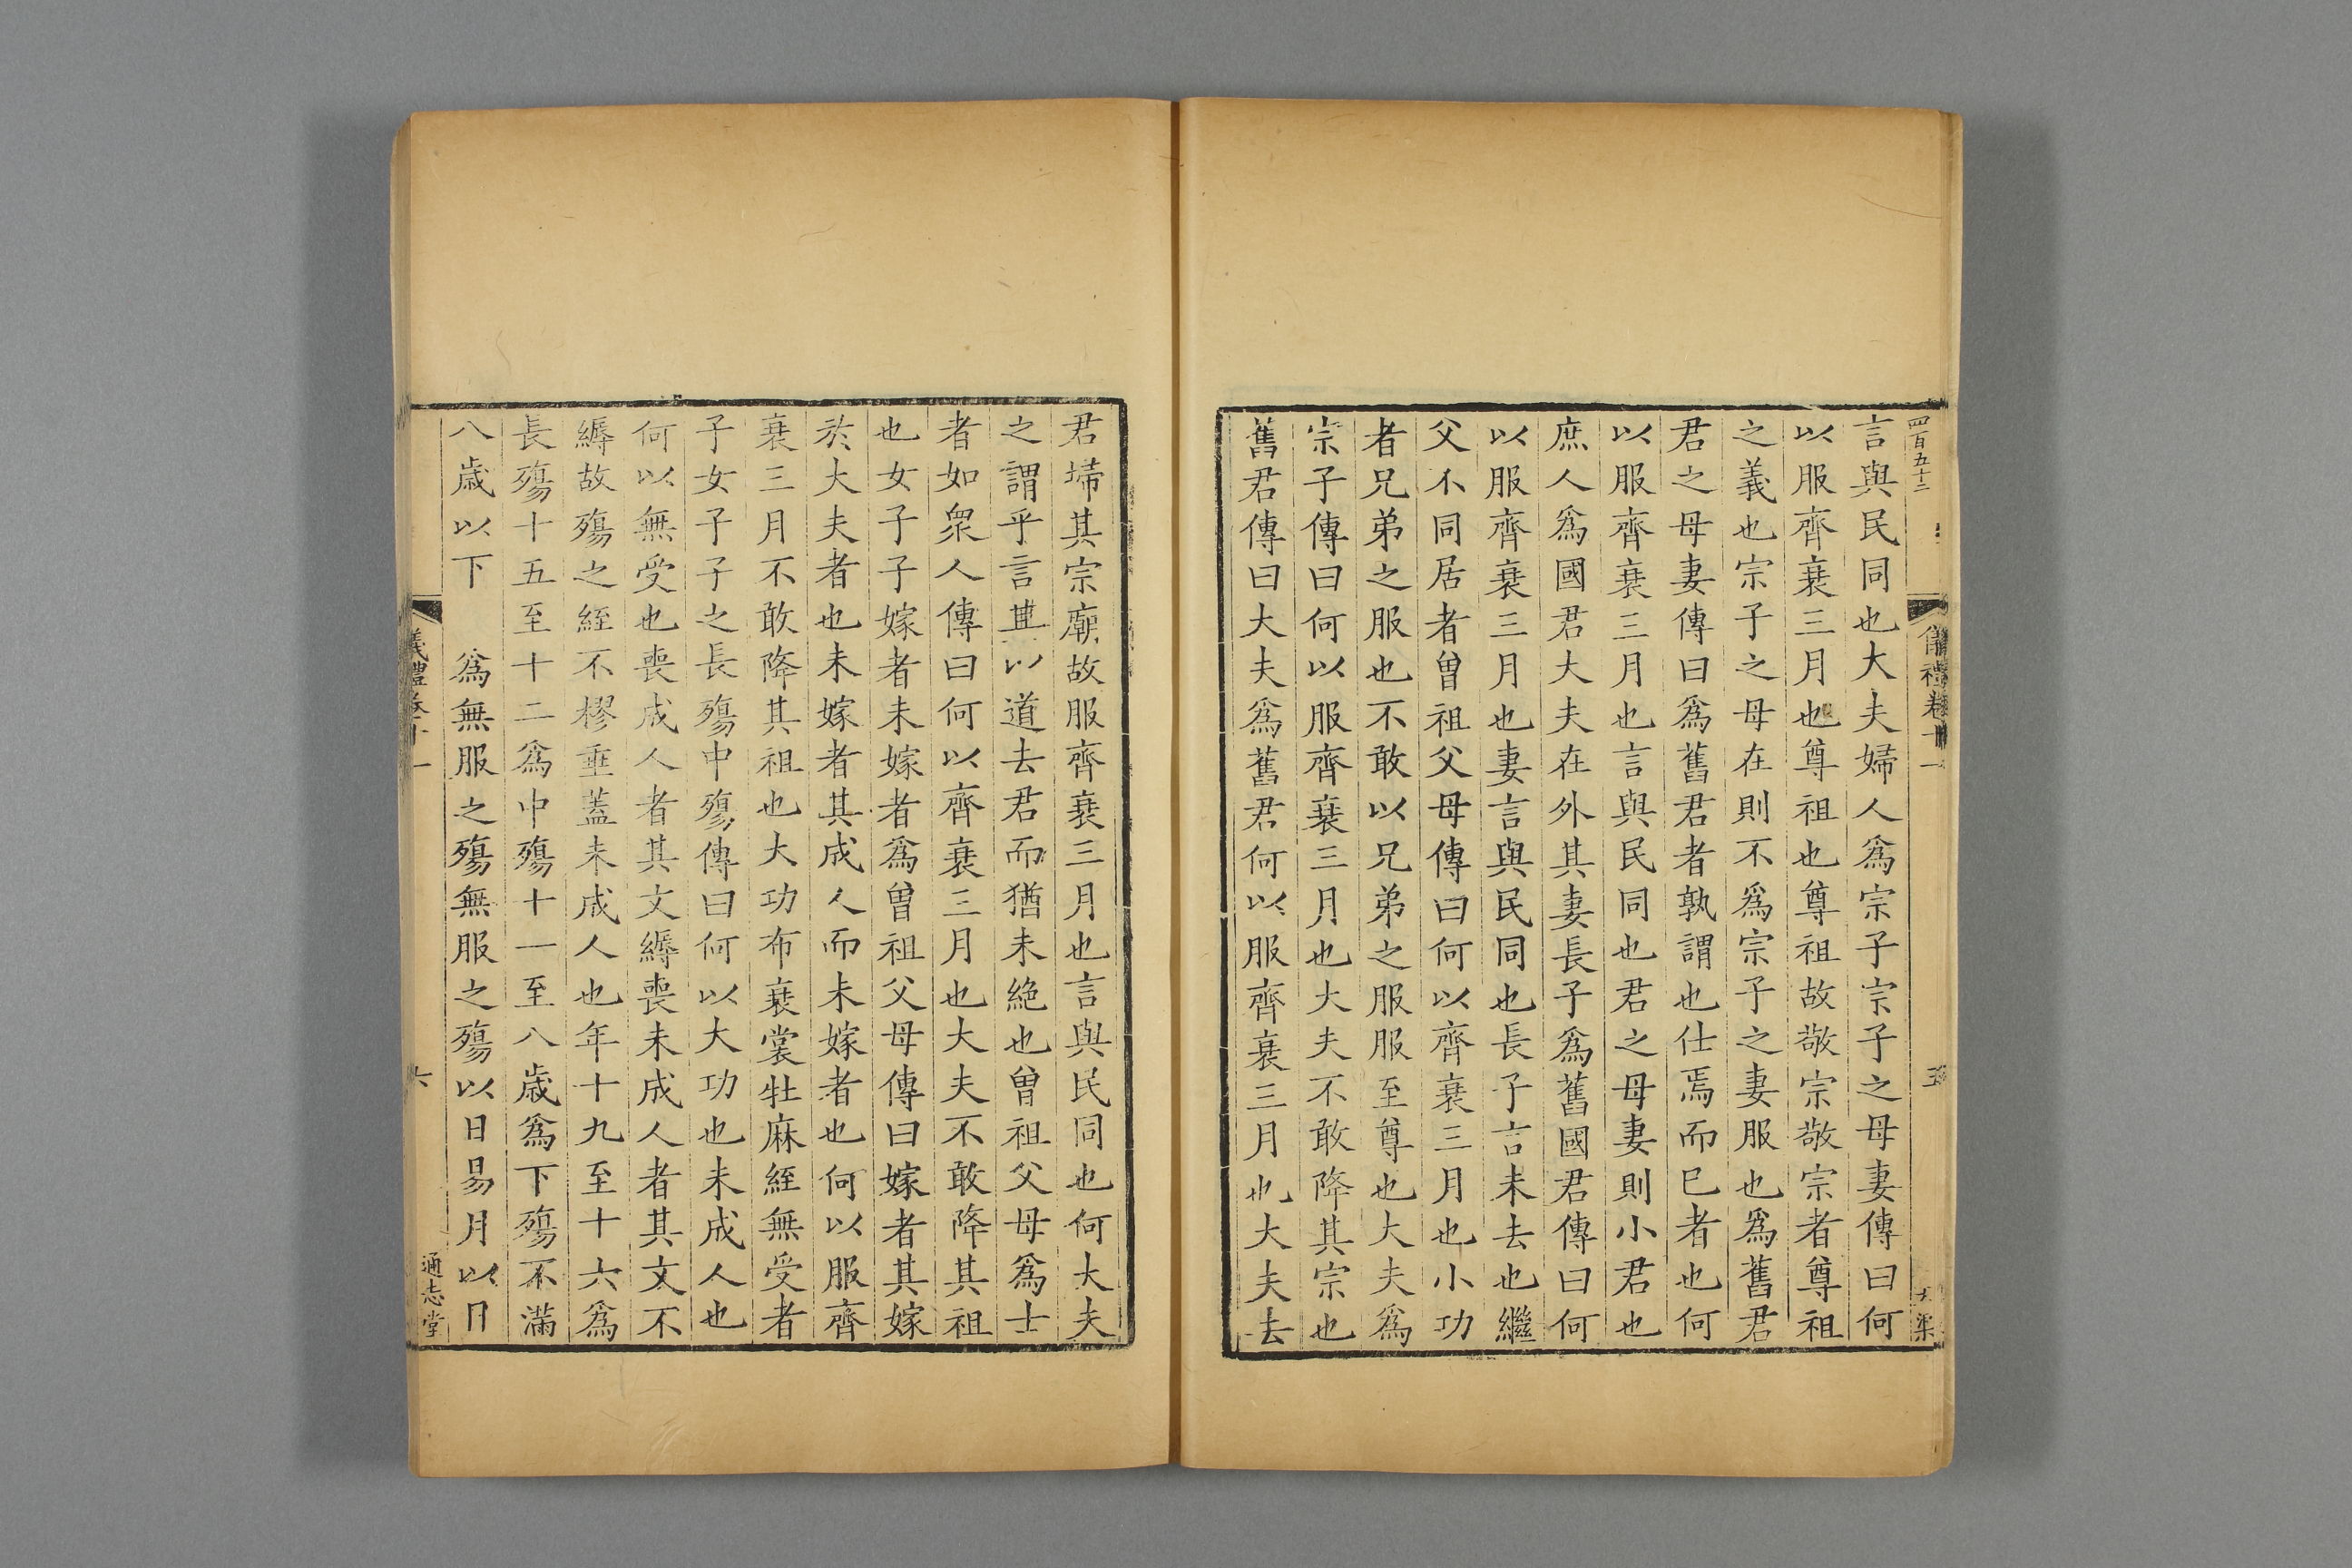 四百五十二
儀禮卷十一
五
言與民同也大夫婦人爲宗子宗子之母妻傳曰何
以服齊衰三月也尊祖也尊祖故敬宗敬宗者尊祖
之義也宗子之母在則不爲宗子之妻服也爲舊君
君之母妻傳曰爲舊君者孰謂也仕焉而已者也何
以服齊衰三月也言與民同也君之母妻則小君也
庶人爲國君大夫在外其妻長子爲舊國君傳曰何
以服齊衰三月也妻言與民同也長子言未去也繼
父不同居者曾祖父母傳曰何以齊衰三月也小功
者兄弟之服也不敢以兄弟之服服至尊也大夫爲
宗子傳曰何以服齊衰三月也大夫不敢降其宗也
舊君傳曰大夫爲舊君何以服齊衰三月也大夫去
君埽其宗廟故服齊衰三月也言與民同也何大夫
之謂乎言其以道去君而猶未絶也曾祖父母爲士
者如衆人傳曰何以齊衰三月也大夫不敢降其祖
也女子子嫁者未嫁者爲曾祖父母傳曰嫁者其嫁
於大夫者也未嫁者其成人而未嫁者也何以服齊
衰三月不敢降其祖也大功布衰裳牡麻絰無受者
子女子子之長殤中殤傳曰何以大功也未成人也
何以無受也喪成人者其文縟喪未成人者其文不
縟故殤之絰不樛垂蓋未成人也年十九至十六爲
長殤十五至十二爲中殤十一至八歲爲下殤不滿
八歲以下 爲無服之殤無服之殤以日易月以日
儀禮卷十一
六
通志堂